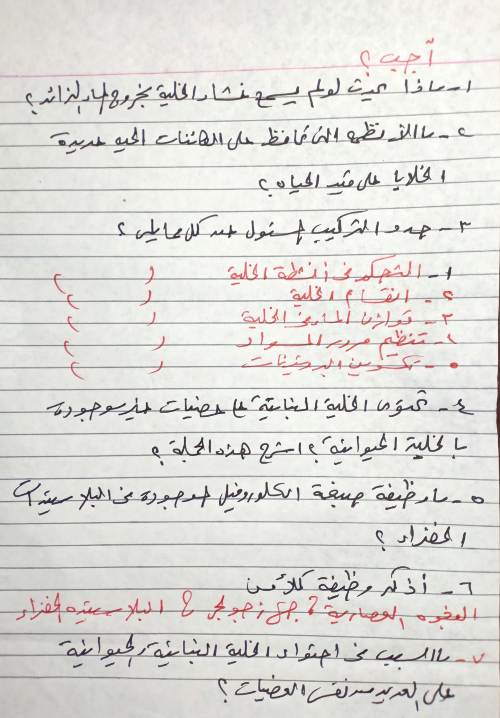 أجب ؟
١- ماذا يحدث لو لم يسمح غشاء الخلية بخروج الماء الزائد ؟
٢- ما الأنظمة التي تحافظ على الكائنات الحيه عديدة
الخلايا على قيد الحياه ؟
٣- حدد التركيب المسئول عن كل مما يلى ؟
١- التحكم فى أنشطة الخلية ( )
٢- انقسام الخلية ( )
٣- توازن الماء فى الخلية ( )
٤- تنظيم مرور المواد ( )
٥- تكوين البروتينات ( )
٤- تحتوى الخلية النباتية على عضيات غير موجودة
بالخلية الحيوانية ؟ اشرح هذه الجملة ؟
٥- ما وظيفة صبغة الكلوروفيل الموجودة فى البلاستيدات
الخضراء ؟
٦- أذكر وظيفة كلا من
الفجوه العصارية ؟ جهاز جولجى ؟ البلاستيده الخضراء
٧- ما السبب فى احتواء الخلية النباتية والحيوانية
على العديد من نفس العضيات ؟